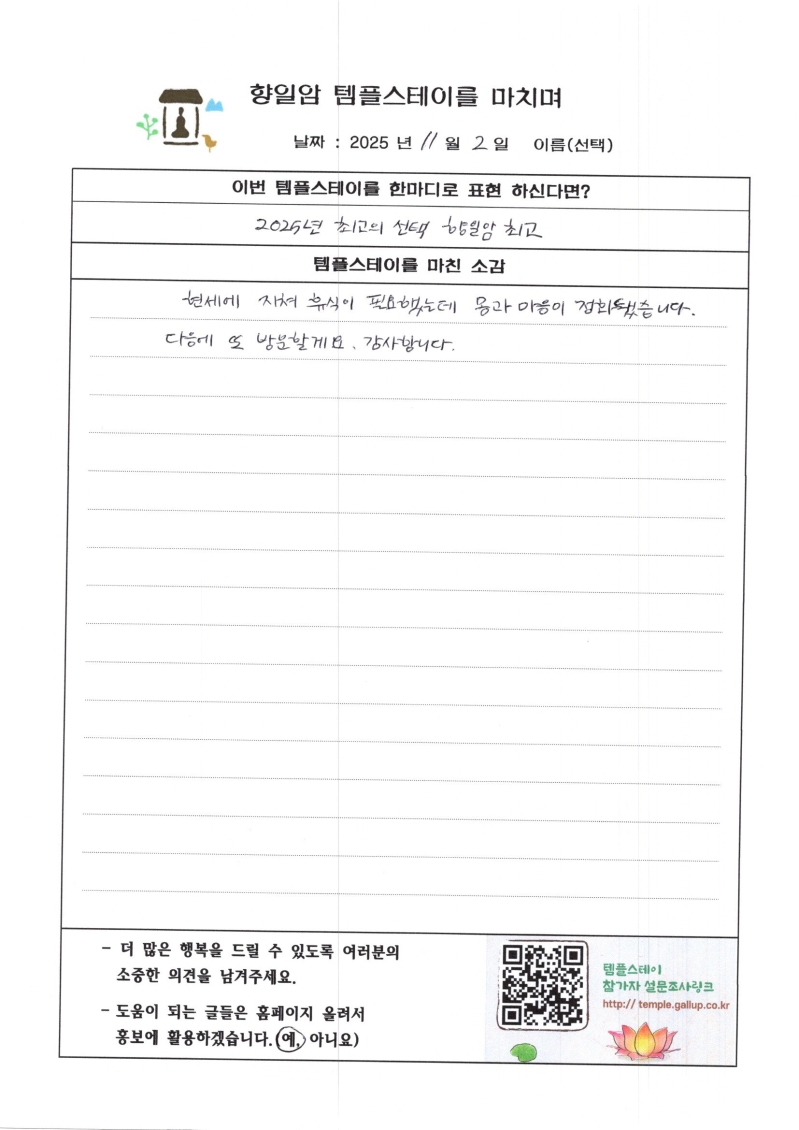 향일암 템플스테이를 마치며
날짜 : 2025 년 11 월 2 일 이름(선택)
이번 템플스테이를 한마디로 표현 하신다면?
2025년 최고의 선택 향일암 최고
템플스테이를 마친 소감
현세에 지쳐 휴식이 필요했는데 몸과 마음이 정화됐습니다.
다음에 또 방문할게요. 감사합니다.
- 더 많은 행복을 드릴 수 있도록 여러분의
소중한 의견을 남겨주세요.
- 도움이 되는 글들은 홈페이지 올려서
홍보에 활용하겠습니다.(예, 아니요)
템플스테이
참가자 설문조사링크
http:// temple.gallup.co.kr